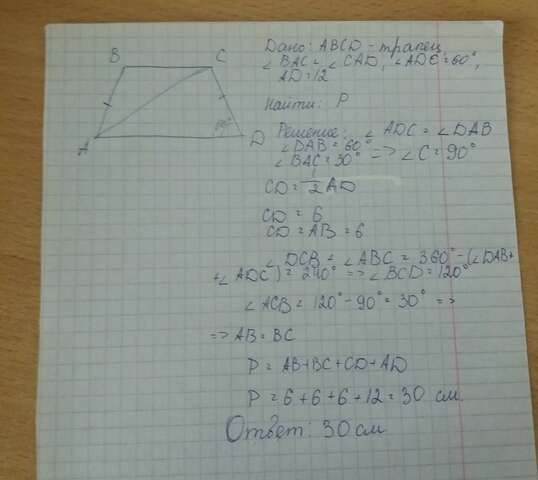 B C
A D
60°
Дано: ABCD - трапец.
∠BAC = ∠CAD, ∠ADC = 60°,
AD = 12
Найти: P
Решение: ∠ADC = ∠DAB
∠DAB = 60°
∠BAC = 30° => ∠C = 90°
CD = 1/2 AD
CD = 6
CD = AB = 6
∠DCB + ∠ABC = 360° - (∠DAB +
+ ∠ADC) = 240° => ∠BCD = 120°
∠ACB = 120° - 90° = 30° =>
=> AB = BC
P = AB + BC + CD + AD
P = 6 + 6 + 6 + 12 = 30 см
Ответ: 30 см